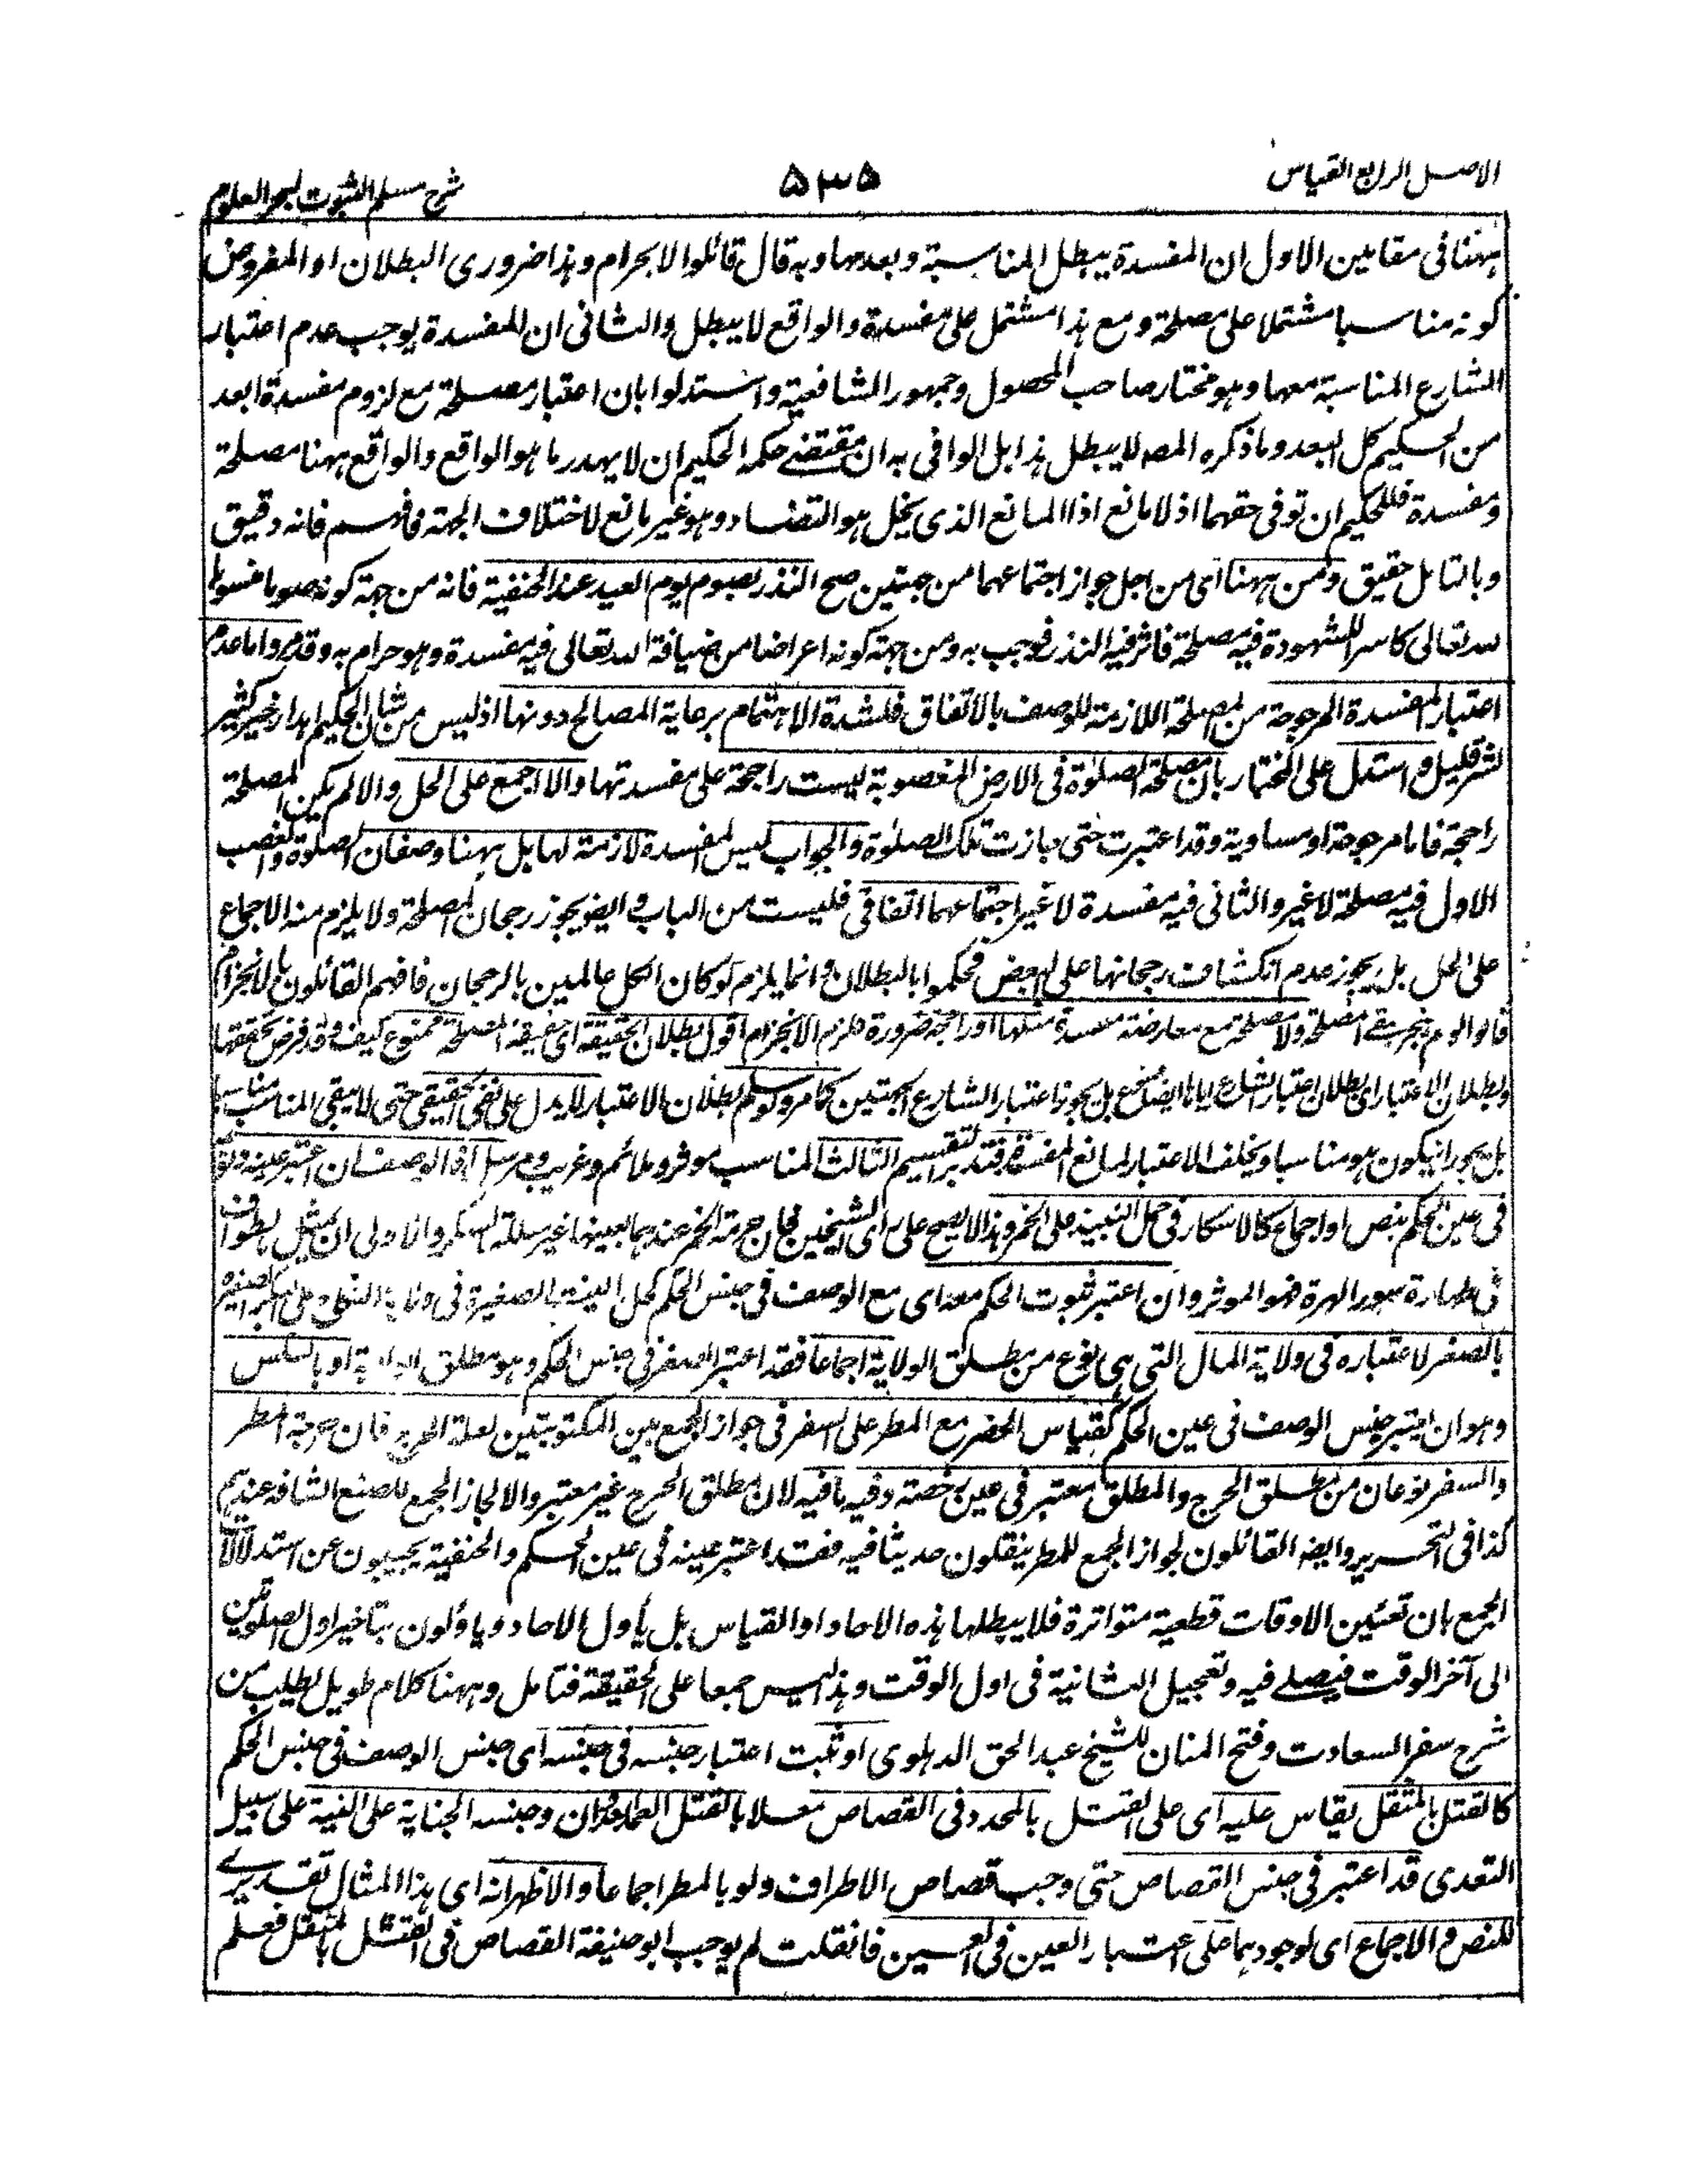 الاصل الرابع القياس
۵۳۵
شرح مسلم الثبوت لبحر العلوم
ههنا فى مقامين الاول ان المفسدة يبطل المناسبة وبعدمها وبه قال قائلوا الانجرام وهذا ضرورى البطلان اذ المفروض
كونه مناسبا مشتملا على مصلحة ومع هذا مشتمل على مفسدة والواقع لا يبطل والثانى ان المفسدة يوجب عدم اعتبار
الشارع المناسبة معها وهو مختار صاحب المحصول وجمهور الشافعية واستدلوا بان اعتبار مصلحة مع لزوم مفسدة ابعد
من الحكيم كل البعد وما ذكره المصه لا يبطل هذا بل الوافى به ان مقتضے حكمة الحكيم ان لا يهدر ما هو الواقع والواقع ههنا مصلحة
ومفسدة فللحكيم ان توفى حقهما اذ لا مانع اذا المانع الذى يخيل هو التضاد وهو غير مانع لاختلاف الجهة فافهم فانه دقيق
وبالتامل حقيق ومن ههنا اى من اجل جواز اجتماعهما من جهتين صح النذر بصوم يوم العيد عند الحنفية فانه من جهة كونه صوما منسوبا
لله تعالى كاسر الشهودة فيه مصلحة فاثر فيه النذر فوجب به ومن جهة كونه اعراضا من ضيافة الله تعالى فيه مفسدة وهو حرام به وقد مر واما عدم
اعتبار المفسدة المرجوحة من المصلحة اللازمة للوصف بالاتفاق فلشدة الاهتمام برعاية المصالح دونها اذ ليس من شان الحكيم اهدار خير كثير
لشر قليل واستدل على المختار بان مصلحة الصلوة فى الارض المغصوبة ليست راجحة على مفسدتها والا اجمع على الحل والا لم يكن المصلحة
راجحة فاما مرجوحة او مساوية وقد اعتبرت حتى جازت تلك الصلوة والجواب ليس المفسدة لازمة لها بل ههنا وصفان الصلوة والغصب
الاول فيه مصلحة لا غير والثانى فيه مفسدة لا غير اجتماعهما اتفاقى فليست من الباب فى ايضه يجوز رجحان المصلحة ولا يلزم منه الاجماع
على الحل بل يجوز عدم انكشاف رجحانها على البعض فحكموا بالبطلان وانما يلزم لو كان الكل عالمين بالرجحان فافهم القائلون بالانخرام
قالوا لو لم ينخرم بقى المصلحة ولا مصلحة مع معارضة مفسدة مثلها او راجحة ضرورة فلزم الانخرام اقول بطلان الحقيقة اى حقيقة المصلحة ممنوع كيف وقد فرض تحققها
وبطلان الاعتبار اى بطلان اعتبار الشارع اياها ايضا ممنوع بل يجوز اعتبار الشارع الجهتين كما مر ولو سلم بطلان الاعتبار لا يدل على نفى الحقيقى حتى لا يبقى المناسب مناسبا
بل يجوز ان يكون هو مناسبا ويخلف الاعتبار لمانع المفسدة فتدبر التقسيم الثالث المناسب مؤثر وملائم وغريب ومرسل اذا الوصف ان اعتبر عينه ونوعه
فى عين الحكم بنص او اجماع كالاسكار فى حمل النبيذ على الخمر وهذا لا يصح على راى الشيخين فان حرمة الخمر عندهما بعينها غير معللة بالسكر والاولى ان يمثل بالطواف
فى طهارة سور الهرة فهو الموثر وان اعتبر ثبوت الحكم معه اى مع الوصف فى جنس الحكم كحمل الثيب الصغيرة فى ولاية النكاح على البكر الصغيرة
بالصغر لاعتباره فى ولاية المال التى هى نوع من مطلق الولاية اجماعا فقد اعتبر الصغر فى جنس الحكم وهو مطلق الولاية او بالعكس
وهو ان يعتبر جنس الوصف فى عين الحكم كقياس الحضر مع المطر على السفر فى جواز الجمع بين المكتوبتين لعلة الحرج فان حرجة المطر
والسفر نوعان من مطلق الحرج والمطلق معتبر فى عين رخصته وفيه ما فيه لان مطلق الحرج غير معتبر والا لجاز الجمع للصنع الشاقة عندهم
كذا فى التحرير وايضه القائلون لجواز الجمع للمطر ينقلون حديثا فيه فقد اعتبر عينه فى عين الحكم والحنفية يجيبون عن استدلالات
الجمع بان تعيين الاوقات قطعية متواترة فلا يبطلها هذه الاحاد او القياس بل يأول الاحاد وياؤلون بتاخير اول الصلوتين
الى آخر الوقت فيصلے فيه وتعجيل الثانية فى اول الوقت وهذا ليس جمعا على الحقيقة فتامل وههنا كلام طويل يطلب من
شرح سفر السعادت وفتح المنان للشيخ عبد الحق الدهلوى او ثبت اعتبار جنسه فى جنسه اى جنس الوصف فى جنس الحكم
كالقتل بالمثقل يقاس عليه اى على القتل بالمحدد فى القصاص معللا بالقتل العمد العدوان وجنسه الجناية على البنية على سبيل
التعدى قد اعتبر فى جنس القصاص حتى وجب قصاص الاطراف ولو بالمطر اجماعا والاظهر انه اى هذا المثال تقديرے
للنص والاجماع اى لوجودهما على اعتبار العين فى العين فان قلت لم يوجب ابو حنيفة القصاص فى القتل بالمثقل فعلم